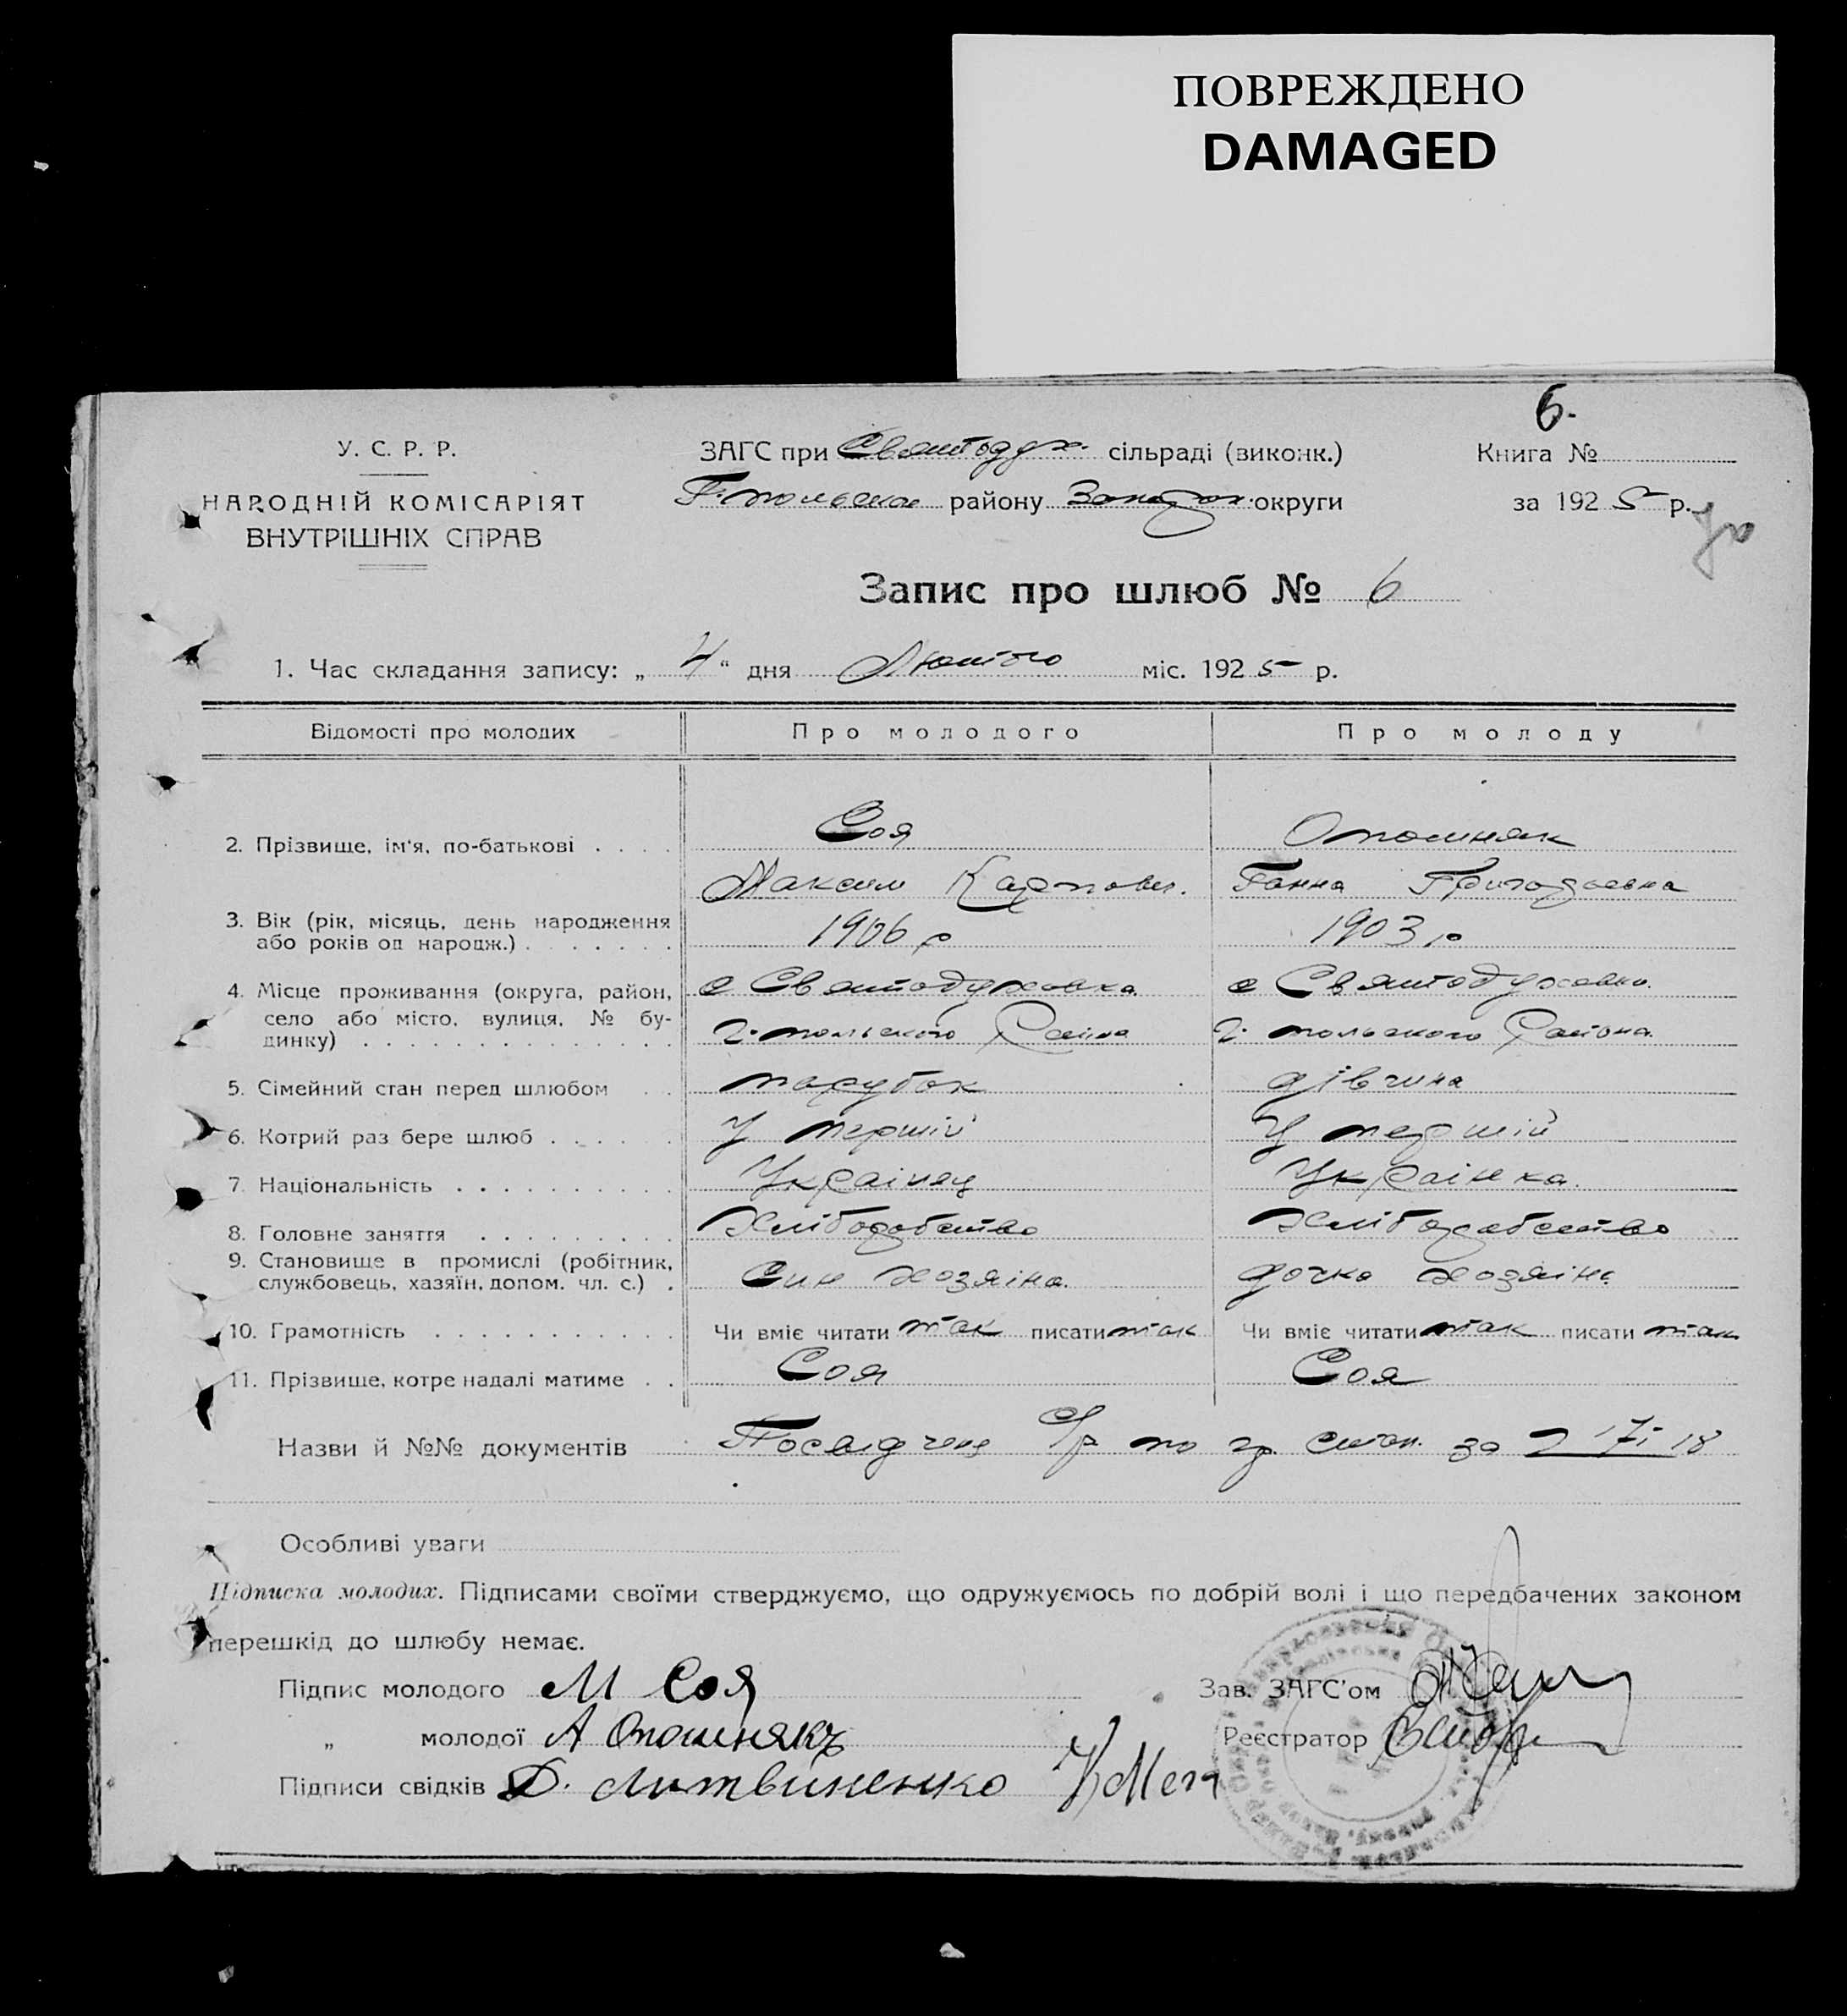 ПОВРЕЖДЕНО
DAMAGED
6.
У. С. Р. Р.
НАРОДНІЙ КОМІСАРІЯТ
ВНУТРІШНІХ СПРАВ
ЗАГС при Святодух. сільраді (виконк.)
Г-польськ району округи
Книга №
за 1925 р.
Запис про шлюб № 6
1. Час складання запису: „ 4 “ дня Лютого міс. 1925 р.
Відомості про молодих Про молодого Про молоду
2. Прізвище, ім'я, по-батькові . . . . Соя Опошняк
Максим Карпович. Ганна Григорьевна
3. Вік (рік, місяць, день народження
або років од народж.) . . . . . . . 1906 р 1903 р
4. Місце проживання (округа, район, с Святодуховка с Святодуховка.
село або місто, вулиця, № бу-
динку) . . . . . . . . . . . . . . Г-польского Района Г-польского Района.
5. Сімейний стан перед шлюбом . . парубок дівчина
6. Котрий раз бере шлюб . . . . . У перший У перший
7. Національність . . . . . . . . . . Українец Українка.
8. Головне заняття . . . . . . . . . Хліборобство Хліборобство
9. Становище в промислі (робітник,
службовець, хазяїн, допом. чл. с.) . Син хозяіна. дочка хозяіна
10. Грамотність . . . . . . . . . . . Чи вміє читати так писати так Чи вміє читати так писати так
11. Прізвище, котре надалі матиме . . Соя Соя
Назви й №№ документів Посвідчення с/р по гр. стан. за 2 17/I 18
Особливі уваги
Підписка молодих. Підписами своїми стверджуємо, що одружуємось по добрій волі і що передбачених законом
перешкід до шлюбу немає.
Підпис молодого М Соя Зав. ЗАГС'ом
„ молодої А Опошнякъ Реєстратор
Підписи свідків Д. Литвиненко